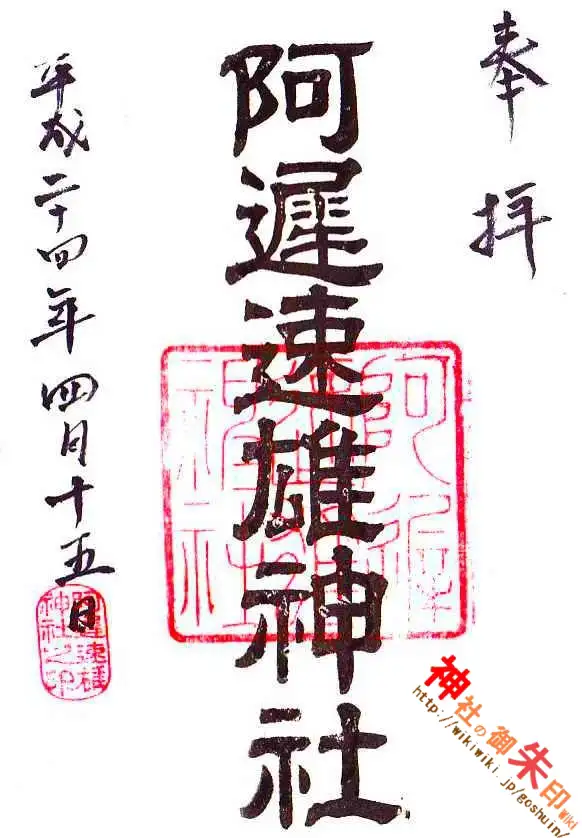 奉拝
阿遲速雄神社
平成二十四年四月十五日
阿遅
速雄
神社
阿遅速雄
神社之印
神社の御朱印 Wiki
http://wikiwiki.jp/goshuin/